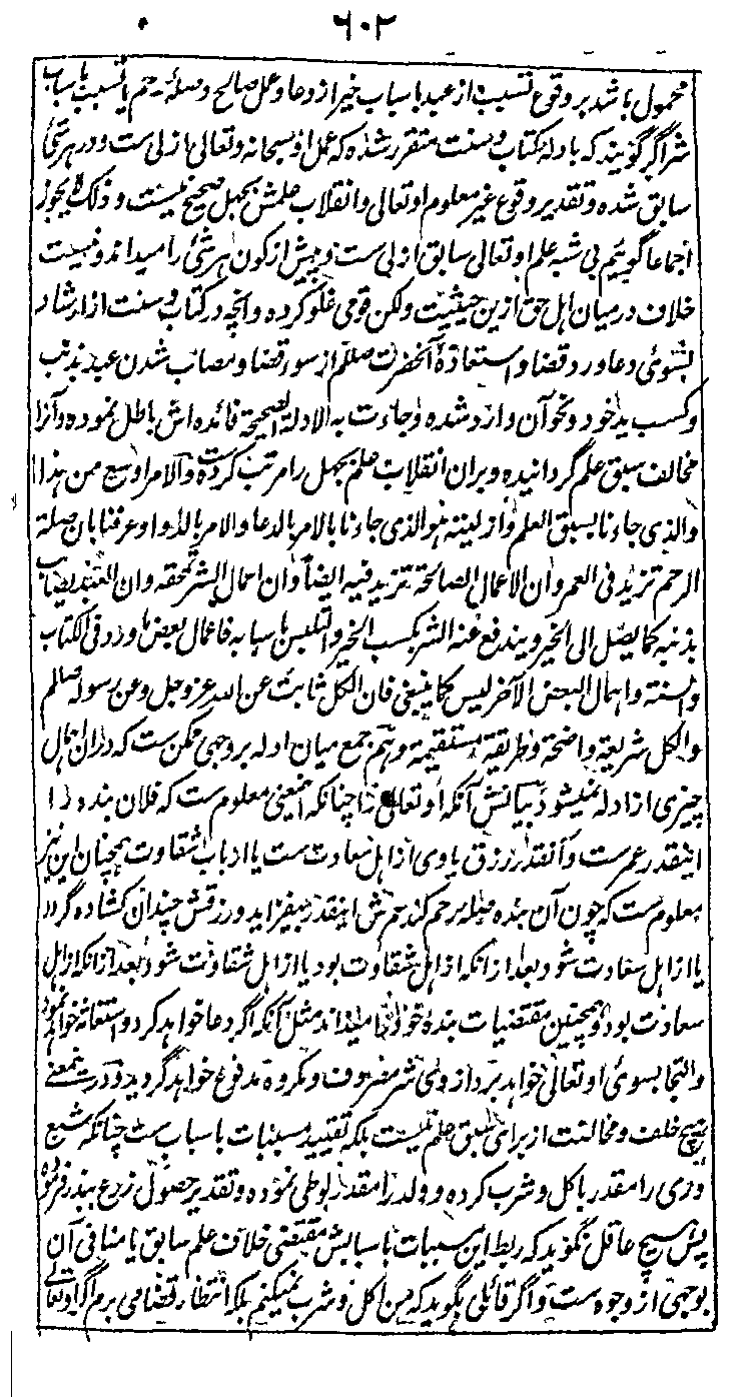 ۶۰۲
محمول باشد بر وقوع تسبب از عبد باسباب خیر از دعا و عمل صالح و صلهٔ رحم یا تسبب باسباب
شر اگر گویند که بادلهٔ کتاب و سنت متقرر شده که علم او سبحانه و تعالی ازلی ست و در هر شئ
سابق شده و تقدیر وقوع غیر معلوم او تعالی و انقلاب علمش بجهل صحیح نیست و ذلک لا یجوز
اجماعا گوئیم بی شبه علم او تعالی سابق ازلی ست و پیش از کون هر شئ را میداند و نیست
خلاف در میان اهل حق ازین حیثیت ولکن قومی غلو کرده و آنچه در کتاب و سنت از ارشاد
بسوئی دعا و رد قضا و استعاذهٔ آنحضرت صللم از سوء قضا و مصاب شدن عبد بذنب
و کسب ید خود و نحو آن وارد شده و جاءت به الادلة الصحیحة فائده اش باطل نموده و آنرا
مخالف سبق علم گردانیده و بران انقلاب علم بجهل را مرتب کرده ست والامر اوسع من هذا
والذی جاءنا بسبق العلم وازلیته هو الذی جاءنا بالامر بالدعا والامر بالدوا وعرفنا بان صلة
الرحم تزید فی العمر وان الاعمال الصالحة تزید فیه ایضا وان اعمال الشر تمحقه وان العبد یصاب
بذنبه کما یصل الی الخیر ویندفع عنه الشر بکسب الخیر والتلبس باسبابه فاعمال بعض ما ورد فی الکتاب
والسنة واهمال البعض الآخر لیس کما ینبغی فان الکل ثابت عن الله عز وجل وعن رسوله صللم
والکل شریعة واضحة وطریقة مستقیمة و هم جمع میان ادله بر وجهی ممکن ست که دران اهمال
چیزی از ادله نمیشود بیانش آنکه او تعالی را چنانکه اینمعنی معلوم ست که فلان بنده را
اینقدر عمر ست و آنقدر رزق یا وی از اهل سعادت ست یا ارباب شقاوت همچنان این نیز
معلوم ست که چون آن بنده صله رحم کند عمرش اینقدر بیفزاید و رزقش چندان کشاده گردد
یا از اهل سعادت شود بعد از انکه از اهل شقاوت بود یا از اهل شقاوت شود بعد از انکه از اهل
سعادت بود و همچنین مقتضیات بندهٔ خود را میداند مثل آنکه اگر دعا خواهد کرد و استغاثه خواهد نمود
و التجا بسوئ او تعالی خواهد برد از وی شر مصروف و مکروه مدفوع خواهد گردید و درینمعنی
هیچ خلف و مخالفت از برای سبق علم نیست بلکه تقیید مسببات باسباب ست چنانکه شبع
و ری را مقدر باکل و شرب کرده و ولد را مقدر بوطی نموده و تقدیر حصول زرع ببذر فرموده
پس هیچ عاقل نگوید که ربط این مسببات باسبابش مقتضی خلاف علم سابق یا منافی آن
بوجهی از وجوه ست و اگر قائلی بگوید که من اکل و شرب نمیکنم بلکه انتظار قضا می برم اگر او تعالی